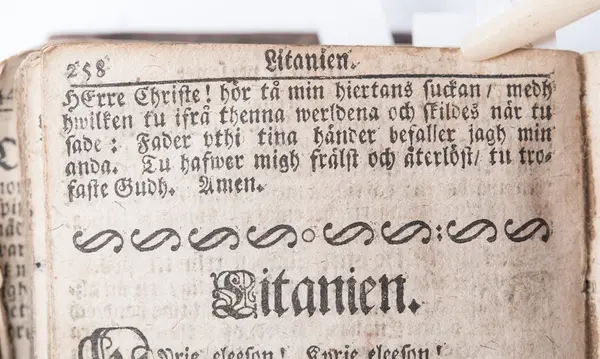 258 Litanien.
HErre Christe! hör tå min hiertans suckan/ medh
hwilken tu ifrå thenna werldena och skildes når tu
sade: Fader vthi tina hånder befaller jagh min
anda. Tu hafwer migh frålst och återlöst/ tu tro-
faste Gudh. Amen.
Litanien.
Kyrie eleeson! Kyrie eleeson!